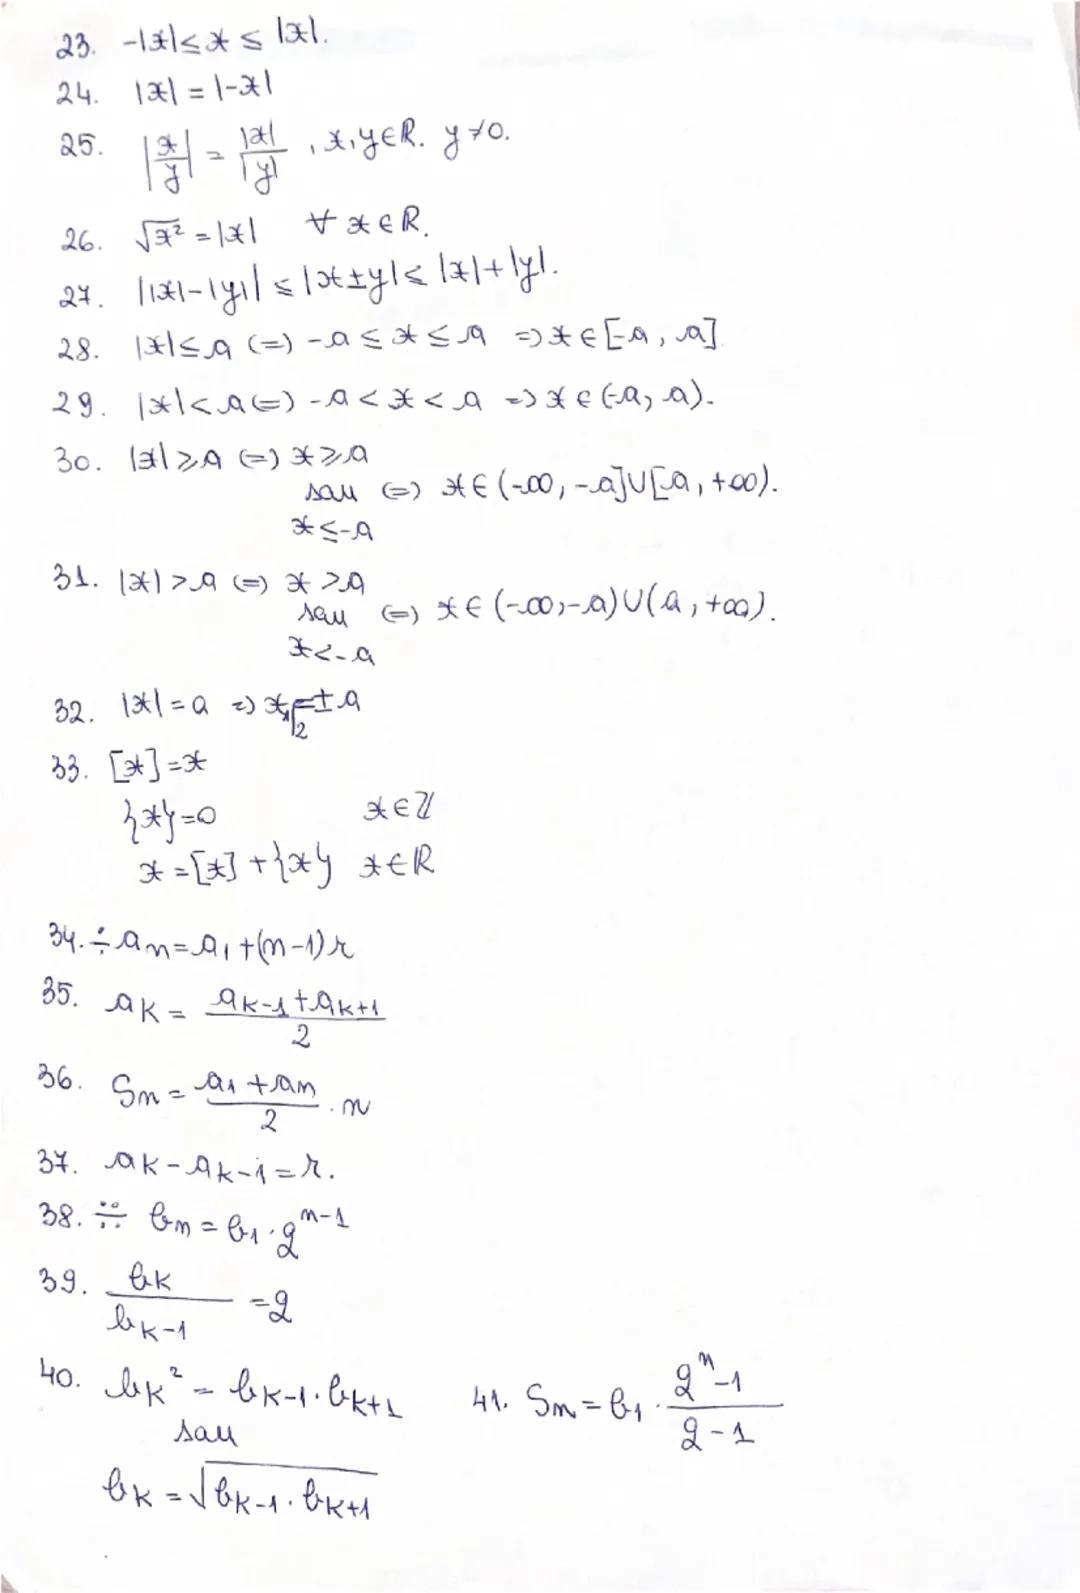 23. -|x| ≤ x ≤ |x|.
24. |x| = |-x|
25. |x/y| = |x|/|y| , x,y∈R. y≠0.
26. √x² = |x| ∀ x∈R.
27. ||x|-|y|| ≤ |x±y| ≤ |x|+|y|.
28. |x| ≤ a (=) -a ≤ x ≤ a => x∈[-a, a]
29. |x| < a (=) -a < x < a => x∈(-a, a).
30. |x| ≥ a (=) x ≥ a
sau (=) x∈(-∞, -a]∪[a, +∞).
x ≤ -a
31. |x| > a (=) x > a
sau (=) x∈(-∞, -a)∪(a, +∞).
x < -a
32. |x| = a => x₁|₂ = ± a
33. [x] = x
{x} = 0 x∈Z
x = [x] + {x} x∈R
34. ÷ an = a₁ + (n-1)r
35. ak = (ak-1 + ak+1)/2
36. Sn = (a₁ + an)/2 · n
37. ak - ak-1 = r.
38. ∺ bn = b₁ · q^(n-1)
39. bk/bk-1 = q
40. bk² = bk-1 · bk+1 41. Sn = b₁ · (qⁿ-1)/(q-1)
sau
bk = √(bk-1 · bk+1)